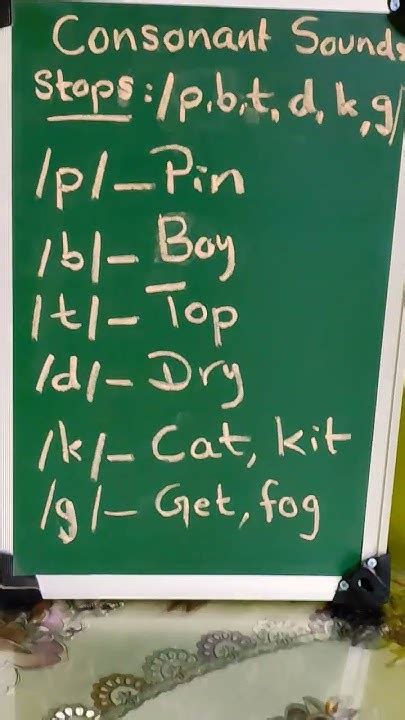 Consonant Sounds
Stops:/p,b,t,d,k,g/
/p/-Pin
/b/-Boy
/t/-Top
/d/-Dry
/k/-Cat, kit
/g/-Get, fog